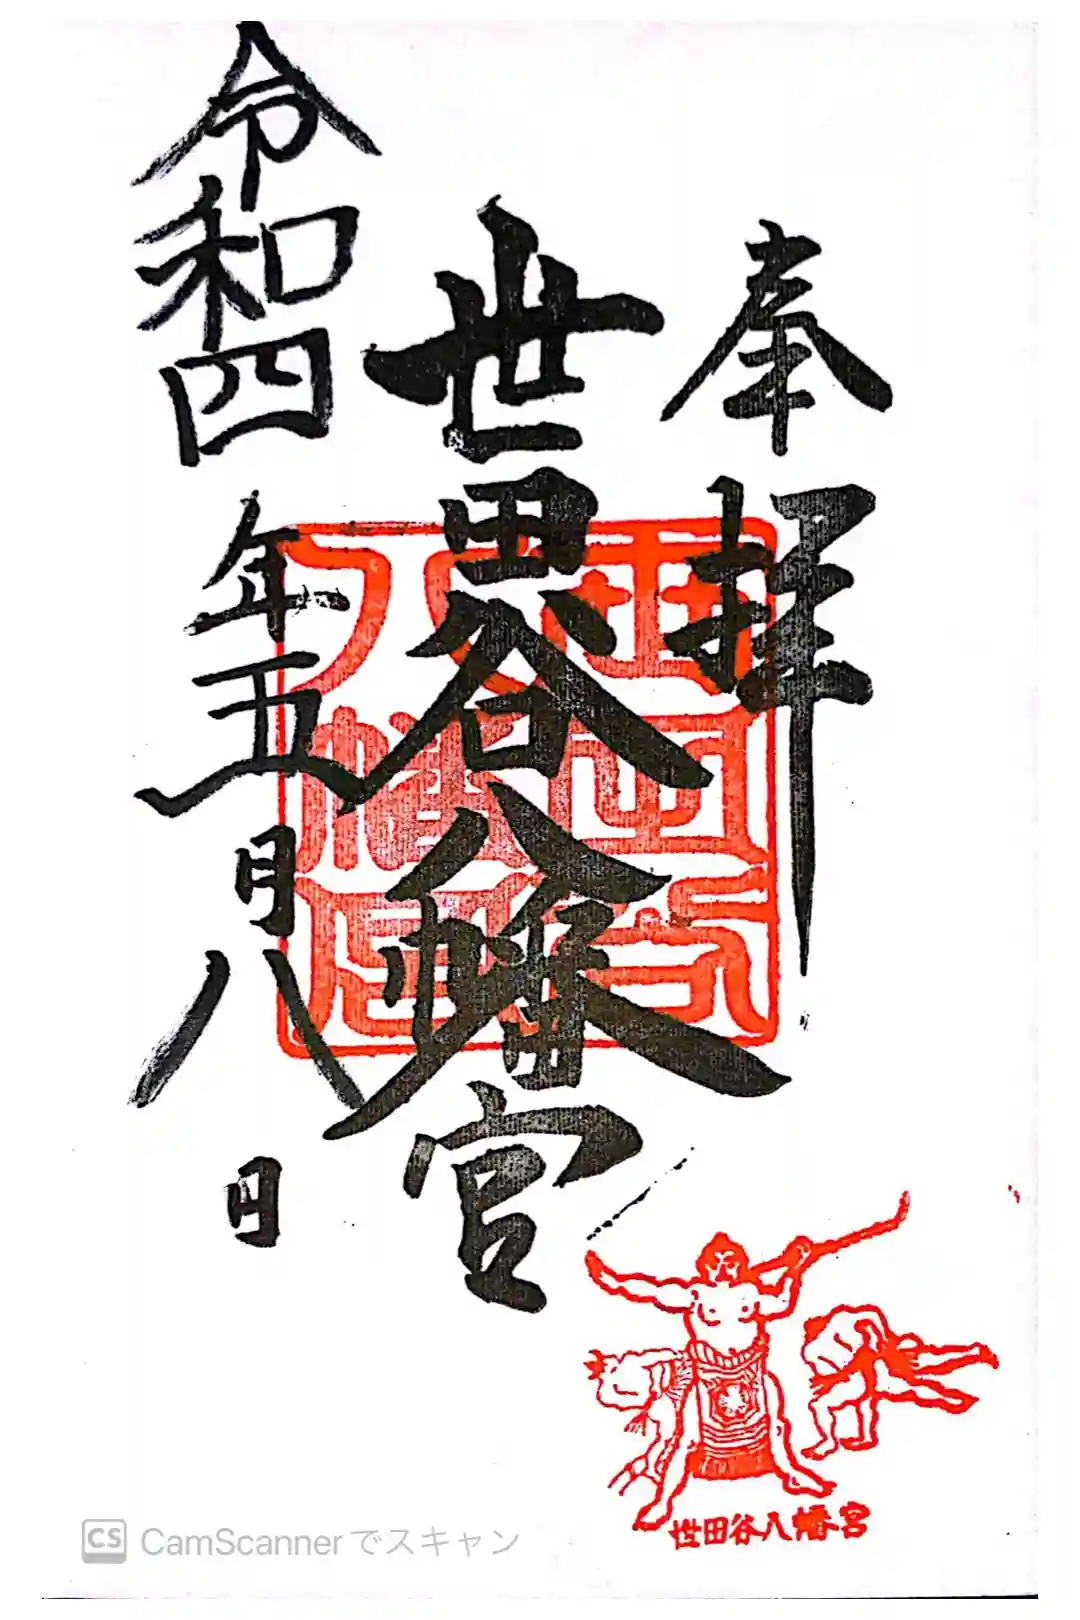 奉拝
世田谷八幡宮
令和四年五月八日
世田谷八幡宮
世田谷八幡宮
CS CamScannerでスキャン